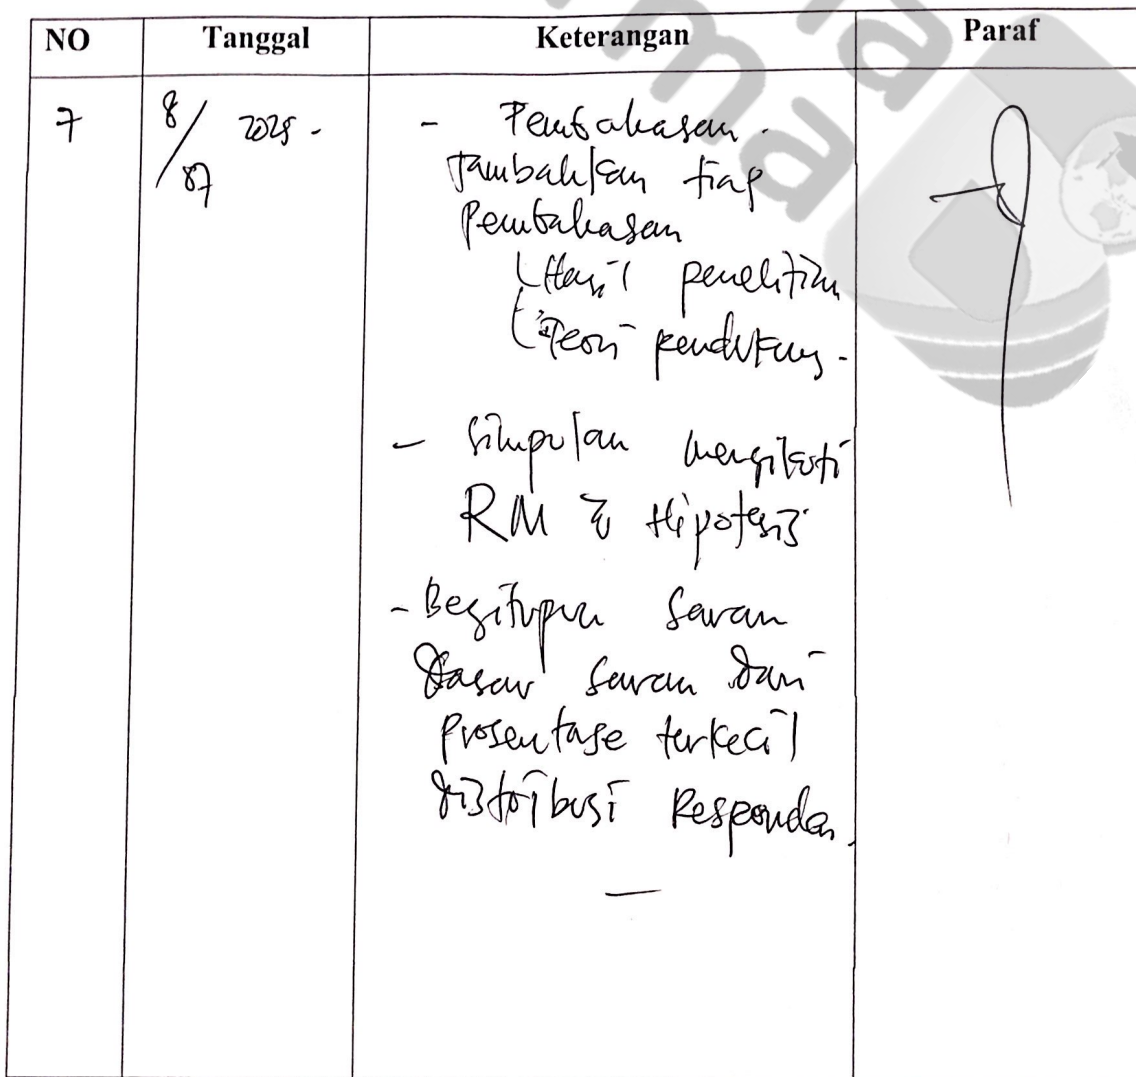 NO Tanggal Keterangan Paraf
7 8/07 2025 - - Pembahasan.
Tambahkan tiap
Pembahasan
Hasil penelitian
Teori pendukung -
- Simpulan mengikuti
RM & Hipotesis
- Begitupun Saran
Dasar Saran dari
Prosentase terkecil
distribusi Responden.